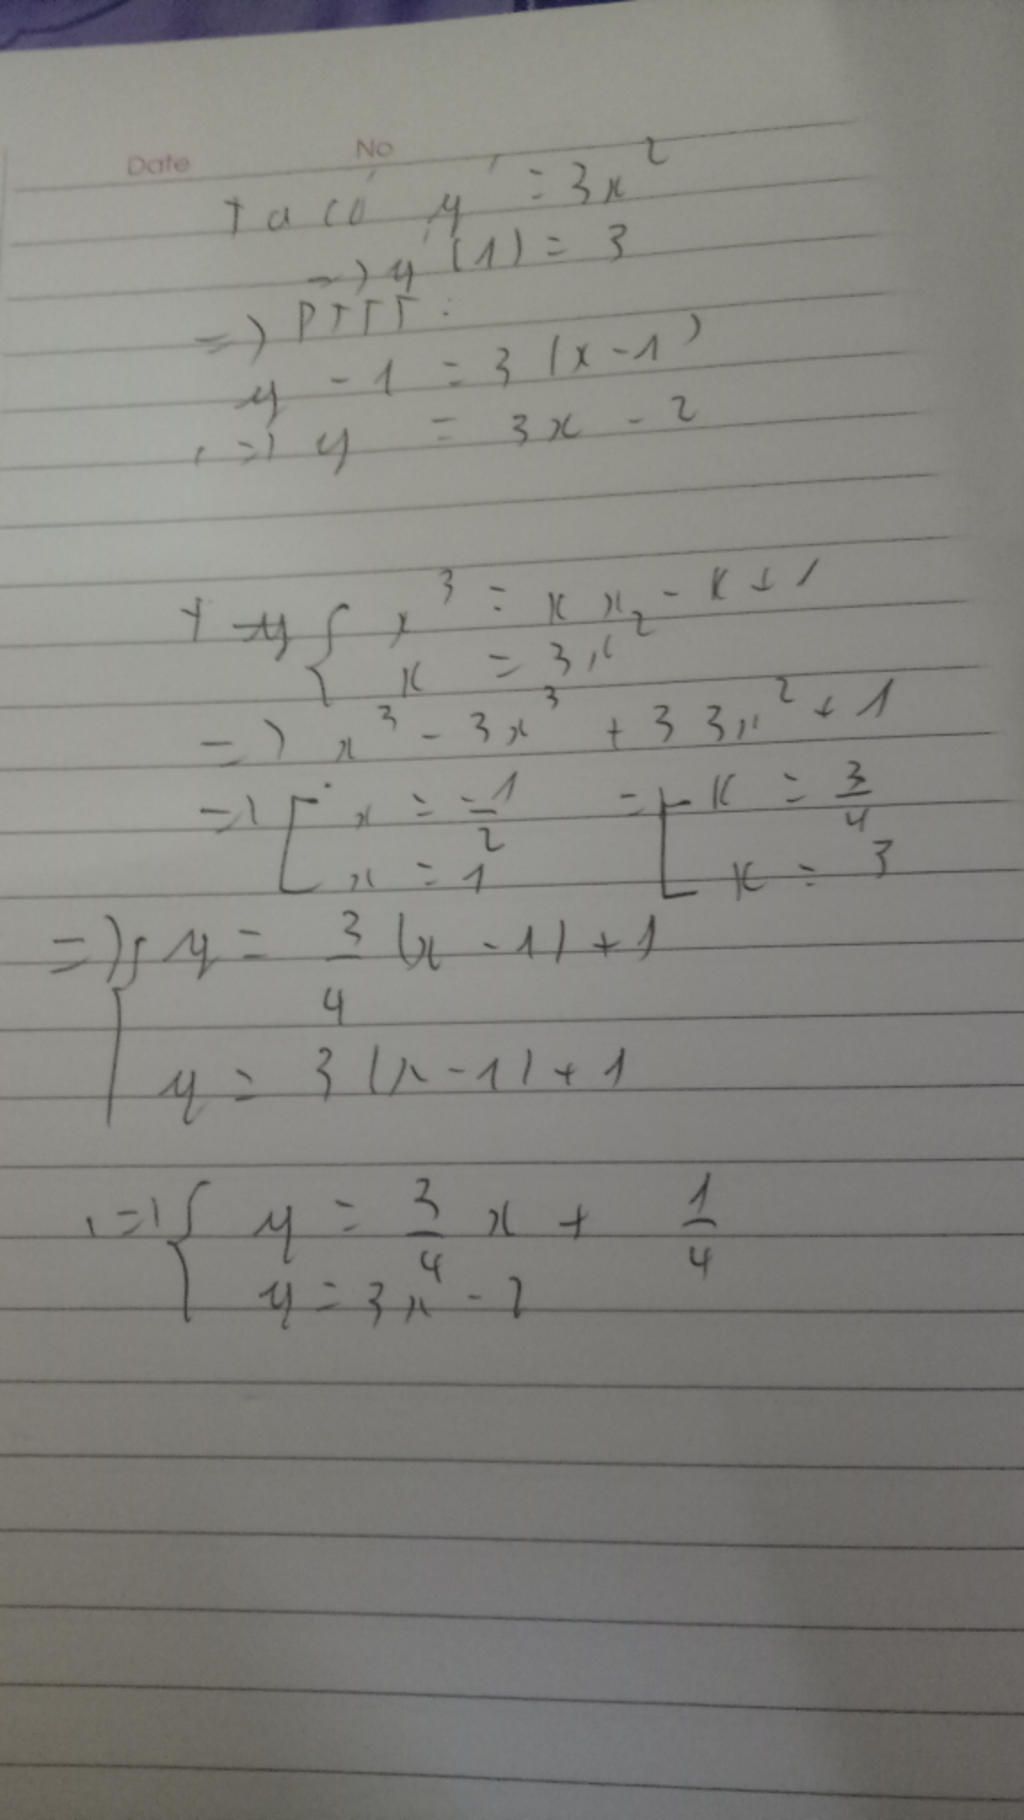 Date No
Ta có y' = 3x²
=> y'(1) = 3
=> PTTT :
y - 1 = 3(x-1)
<=> y = 3x - 2
+ y { x³ = kx - k + 1
k = 3x²
=> x³ - 3x³ + 3 3x² + 1
=> [ x = -1/2 => [ k = 3/4
x = 1 k = 3
=> { y = 3/4 (x - 1) + 1
y = 3(x - 1) + 1
<=> { y = 3/4 x + 1/4
y = 3x - 2